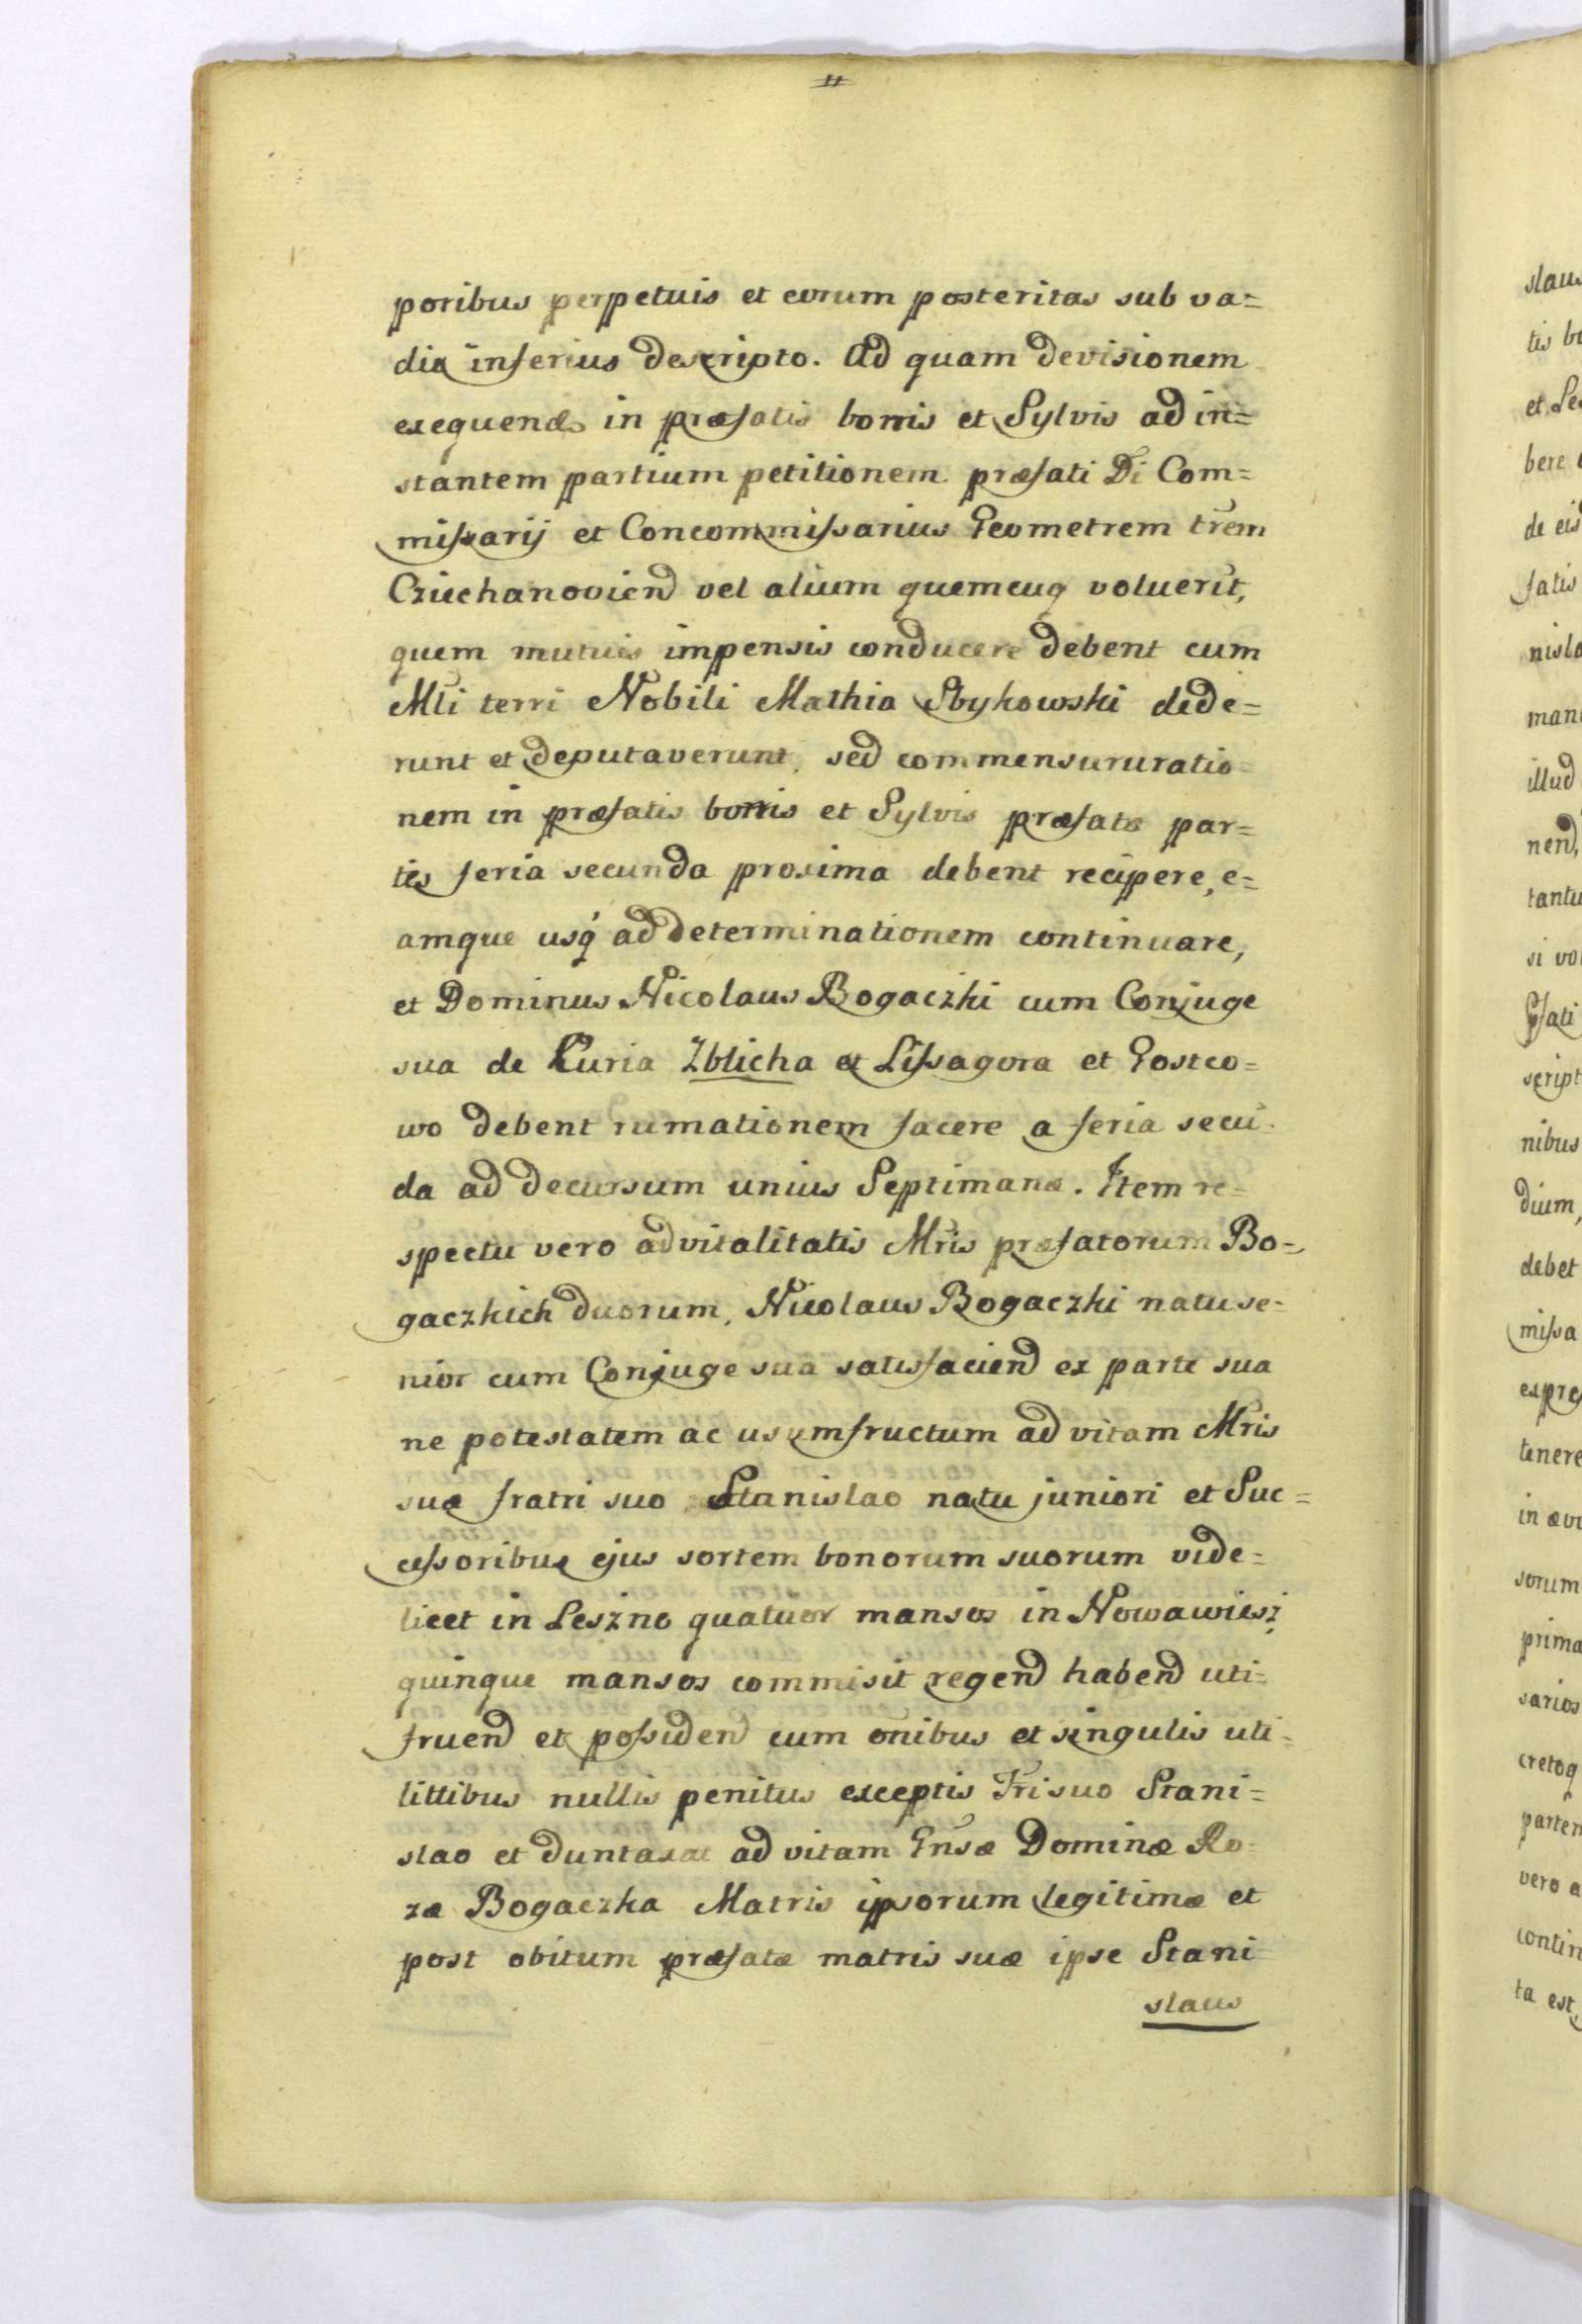 poribus perpetuis et eorum posteritas sub va=
dia inferius descripto. Ad quam devisionem
exequend in præfatis borris et Sylvis ad in=
stantem partium petitionem præfati Di Com=
missarij et Concommissarius Geometrem trem
Cziechanoviend vel alium quemcuq voluerit,
quem mutuis impensis conducere debent cum
Mli terri Nobili Mathia Sbykowski dede=
runt et deputaverunt, sed commensururatio=
nem in præfatis borris et Sylvis præfate par=
tes feria secunda proxima debent recipere, e=
amque usq ad determinationem continuare,
et Dominus Nicolaus Bogaczki cum Conjuge
sua de Curia Zblicha et Lissagora et Gostco=
wo debent rumationem facere a feria secu=
da ad decursum unius Septimanæ. Item re=
spectu vero advitalitatis Mris præfatorum Bo=
gaczkich duorum, Nicolaus Bogaczki natu se=
nior cum Conjuge sua satisfaciend ex parte sua
ne potestatem ac usumfructum ad vitam Mris
suæ fratri suo Stanislao natu juniori et Suc=
cessoribus ejus sortem bonorum suorum vide=
licet in Leszno quatuor mansos in Nowawiesz
quinque mansos commisit regend habend uti=
fruend et possidend cum onibus et singulis uti=
littibus nullis penitus exceptis Fri suo Stani=
slao et duntaxat ad vitam Gnsæ Dominæ Ro=
zæ Bogaczka Matris ipsorum legitimæ et
post obitum præfatæ matris suæ ipse Stani
slaus
slaus
tis
et
bere
de eis
fatis
mani
illud
nend,
si
fati
script
nibus
dium,
debet
missa
tenere
in
sorum
prima
sarios
cretoq
parten
vero a
contin
ta est,